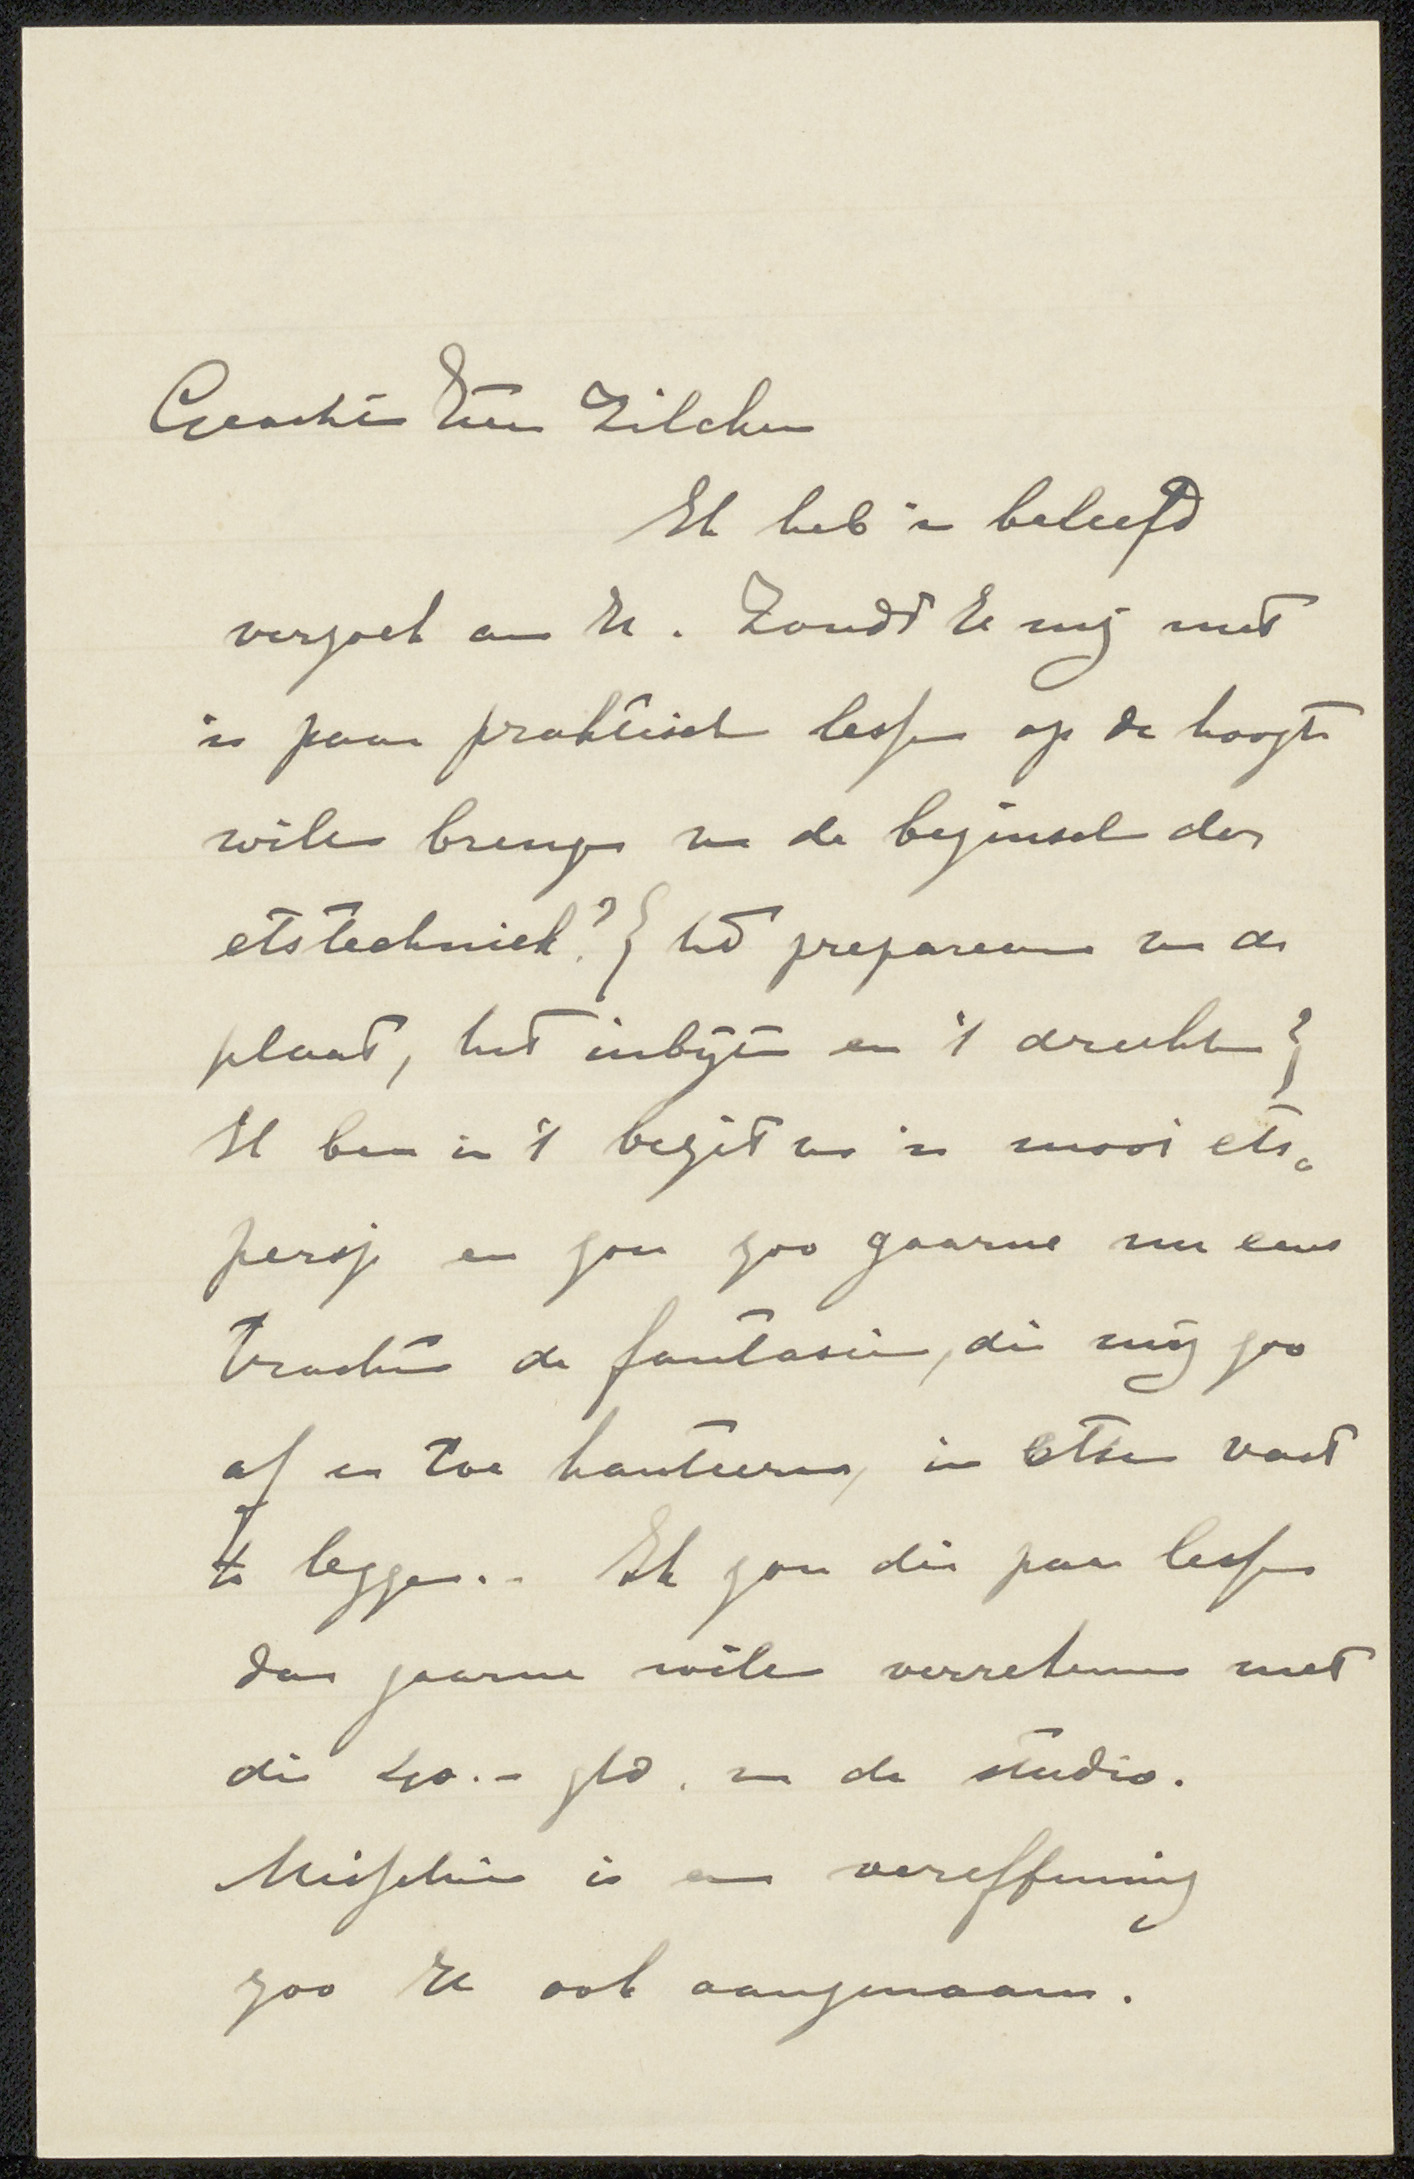 Geachte Heer Zilcken
Ik heb 'n beleefd
verzoek aan U. Zoudt U mij met
'n paar praktische lessen op de hoogte
willen brengen van de beginselen der
etstechniek? { het prepareeren van de
plaat, het inbijten en 't drukken }
Ik ben in 't bezit van 'n mooie ets-
pers en zou zoo gaarne nu eens
trachten de fantasieën, die mij zoo
af en toe hanteeren, in etsen vast
te leggen.. Ik zou die paar lessen
dan gaarne willen verrekenen met
die 40.- gld. van de studie.
Misschien is een vereffening
zoo U ook aangenaam.